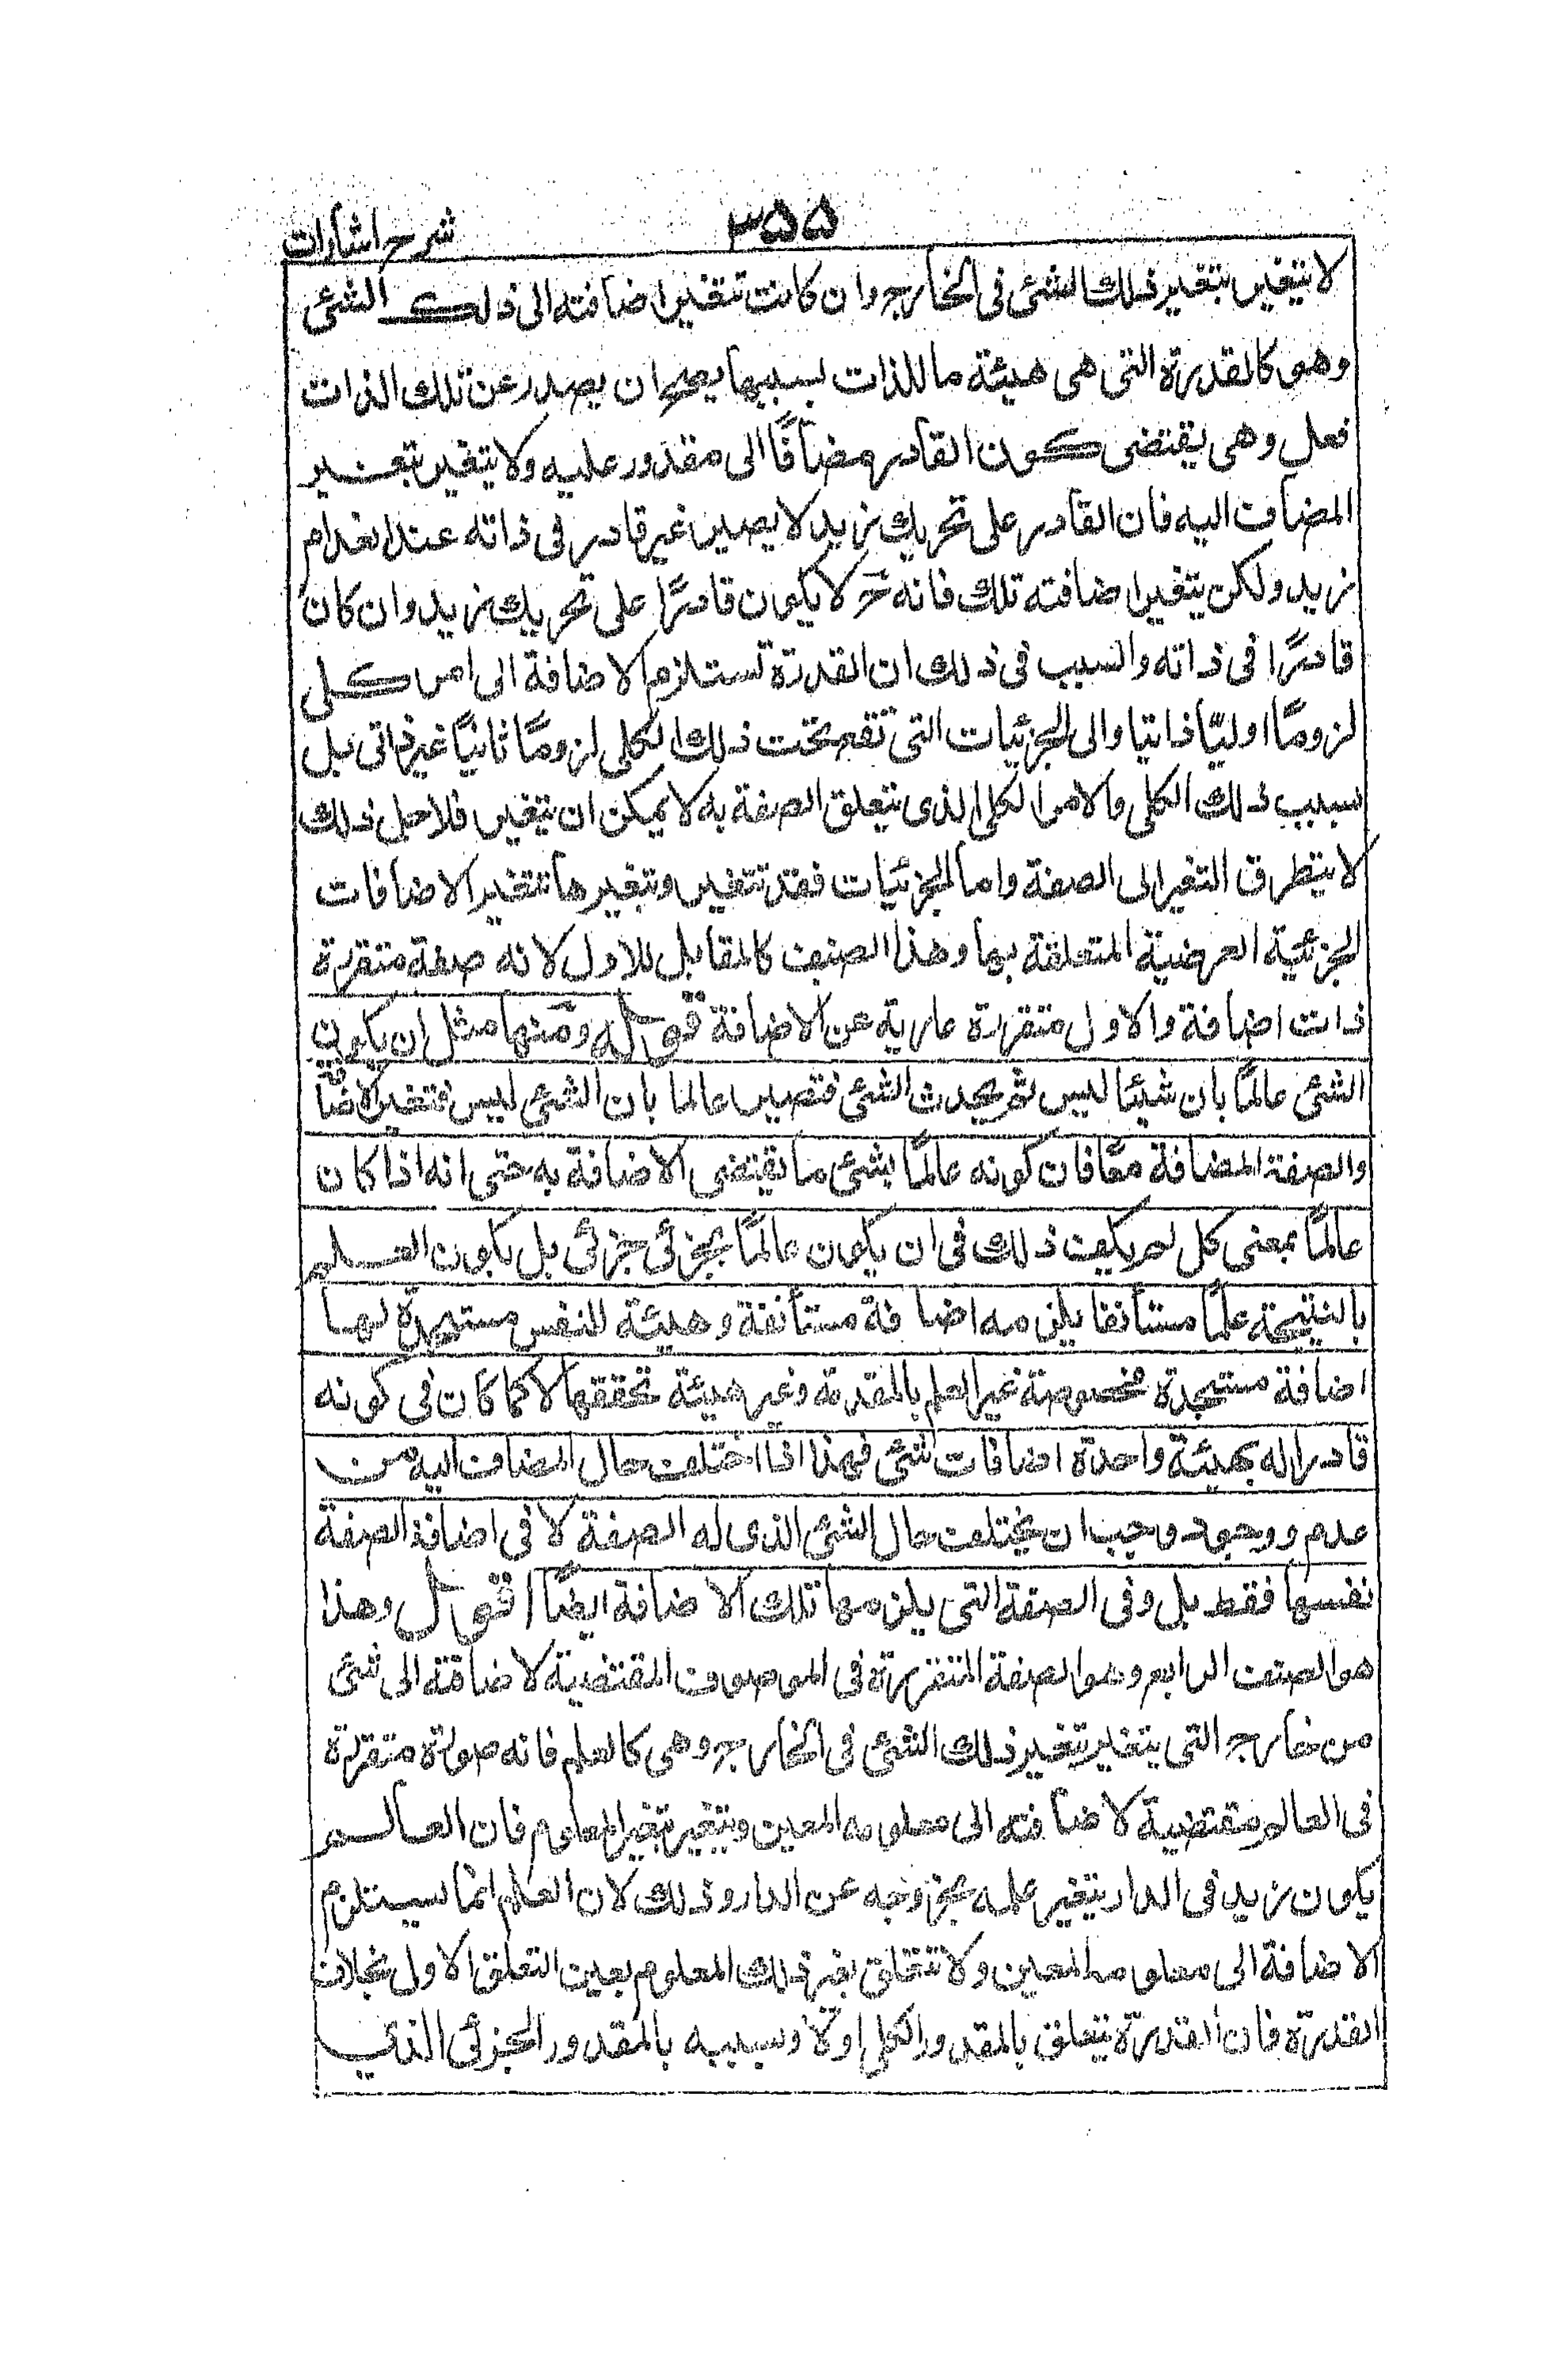 ۳۵۵
شرح اشارات
لا يتغير بتغير ذلك الشئ فى الخارج وان كانت تتغير اضافته الى ذلك الشئ
وهو كالقدرة التى هى هيئة ما للذات بسببها يصح ان يصدر عن تلك الذات
فعل وهى يقتضى كون القادر مضافًا الى مقدور عليه ولا يتغير بتغير
المضاف اليه فان القادر على تحريك زيد لا يصير غير قادر فى ذاته عند انعدام
زيد ولكن يتغير اضافته تلك فانه ح لا يكون قادرًا على تحريك زيد وان كان
قادرًا فى ذاته والسبب فى ذلك ان القدرة تستلزم الاضافة الى امر كلى
لزومًا اوليًّا ذاتيا والى الجزئيات التى تقع تحت ذلك الكلى لزومًا ثانيًا غير ذاتى بل
بسبب ذلك الكلى والامر الكلى الذى يتعلق الصفة به لا يمكن ان يتغير فلاجل ذلك
لا يتطرق التغير الى الصفة واما الجزئيات فقد تتغير وبتغيرها تتغير الاضافات
الجزئية العرضية المتعلقة بها وهذا الصنف كالمقابل للاول لانه صفة متقررة
ذات اضافة والاول متقررة عارية عن الاضافة قوله ومنها مثل ان يكون
الشئ عالمًا بان شيئا ليس ثم يحدث الشئ فتصير عالما بان الشئ ايس فتغير الاضافة
والصفة المضافة معًا فان كونه عالمًا بشئ ما يقتضى الاضافة به حتى انه اذا كان
عالمًا بمعنى كلى لم يكف ذلك فى ان يكون عالمًا بجزئى جزئى بل يكون العلم
بالنتيجة علمًا مستأنفا يلزمه اضافة مستأنفة وهيئة للنفس مستجدة لها
اضافة مستجدة مخصوصة غير العلم بالمقدمة وغير هيئة تحققها لا كما كان فى كونه
قادرا له بهيئة واحدة اضافات شئ فهذا اذا اختلف حال المضاف اليه من
عدم ووجود وجب ان يختلف حال الشئ الذى له الصفة لا فى اضافة الصفة
نفسها فقط بل وفى الصفة التى يلزمها تلك الاضافة ايضًا اقول وهذا
هو الصنف الرابع وهو الصفة المتقررة فى الموصوف المقتضية لاضافته الى شئ
من خارج التى يتغير بتغير ذلك الشئ فى الخارج وهى كالعلم فانه صورة متقررة
فى العالم مقتضية لاضافته الى معلومه المعين ويتغير بتغير المعلوم فان العالم
بكون زيد فى الدار يتغير علمه بخروجه عن الدار وذلك لان العلم انما يستلزم
الاضافة الى معلومه المعين ولا تتعلق بغير ذلك المعلوم بعين التعلق الاول بخلاف
القدرة فان القدرة يتعلق بالمقدور الكلى اولًا وبسببه بالمقدور الجزئى الذى